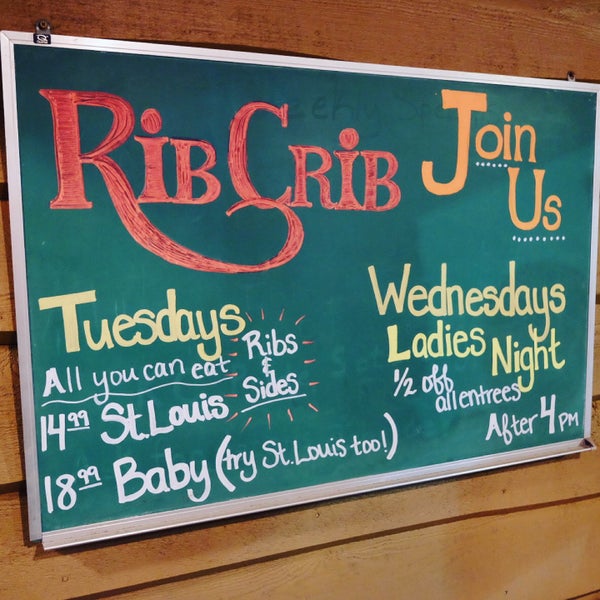 Rib Crib
Join
Us
Tuesdays
All you can eat
Ribs
&
Sides
14.99 St. Louis
18.99 Baby (try St. Louis too!)
Wednesdays
Ladies Night
1/2 off
all entrees
After 4 PM